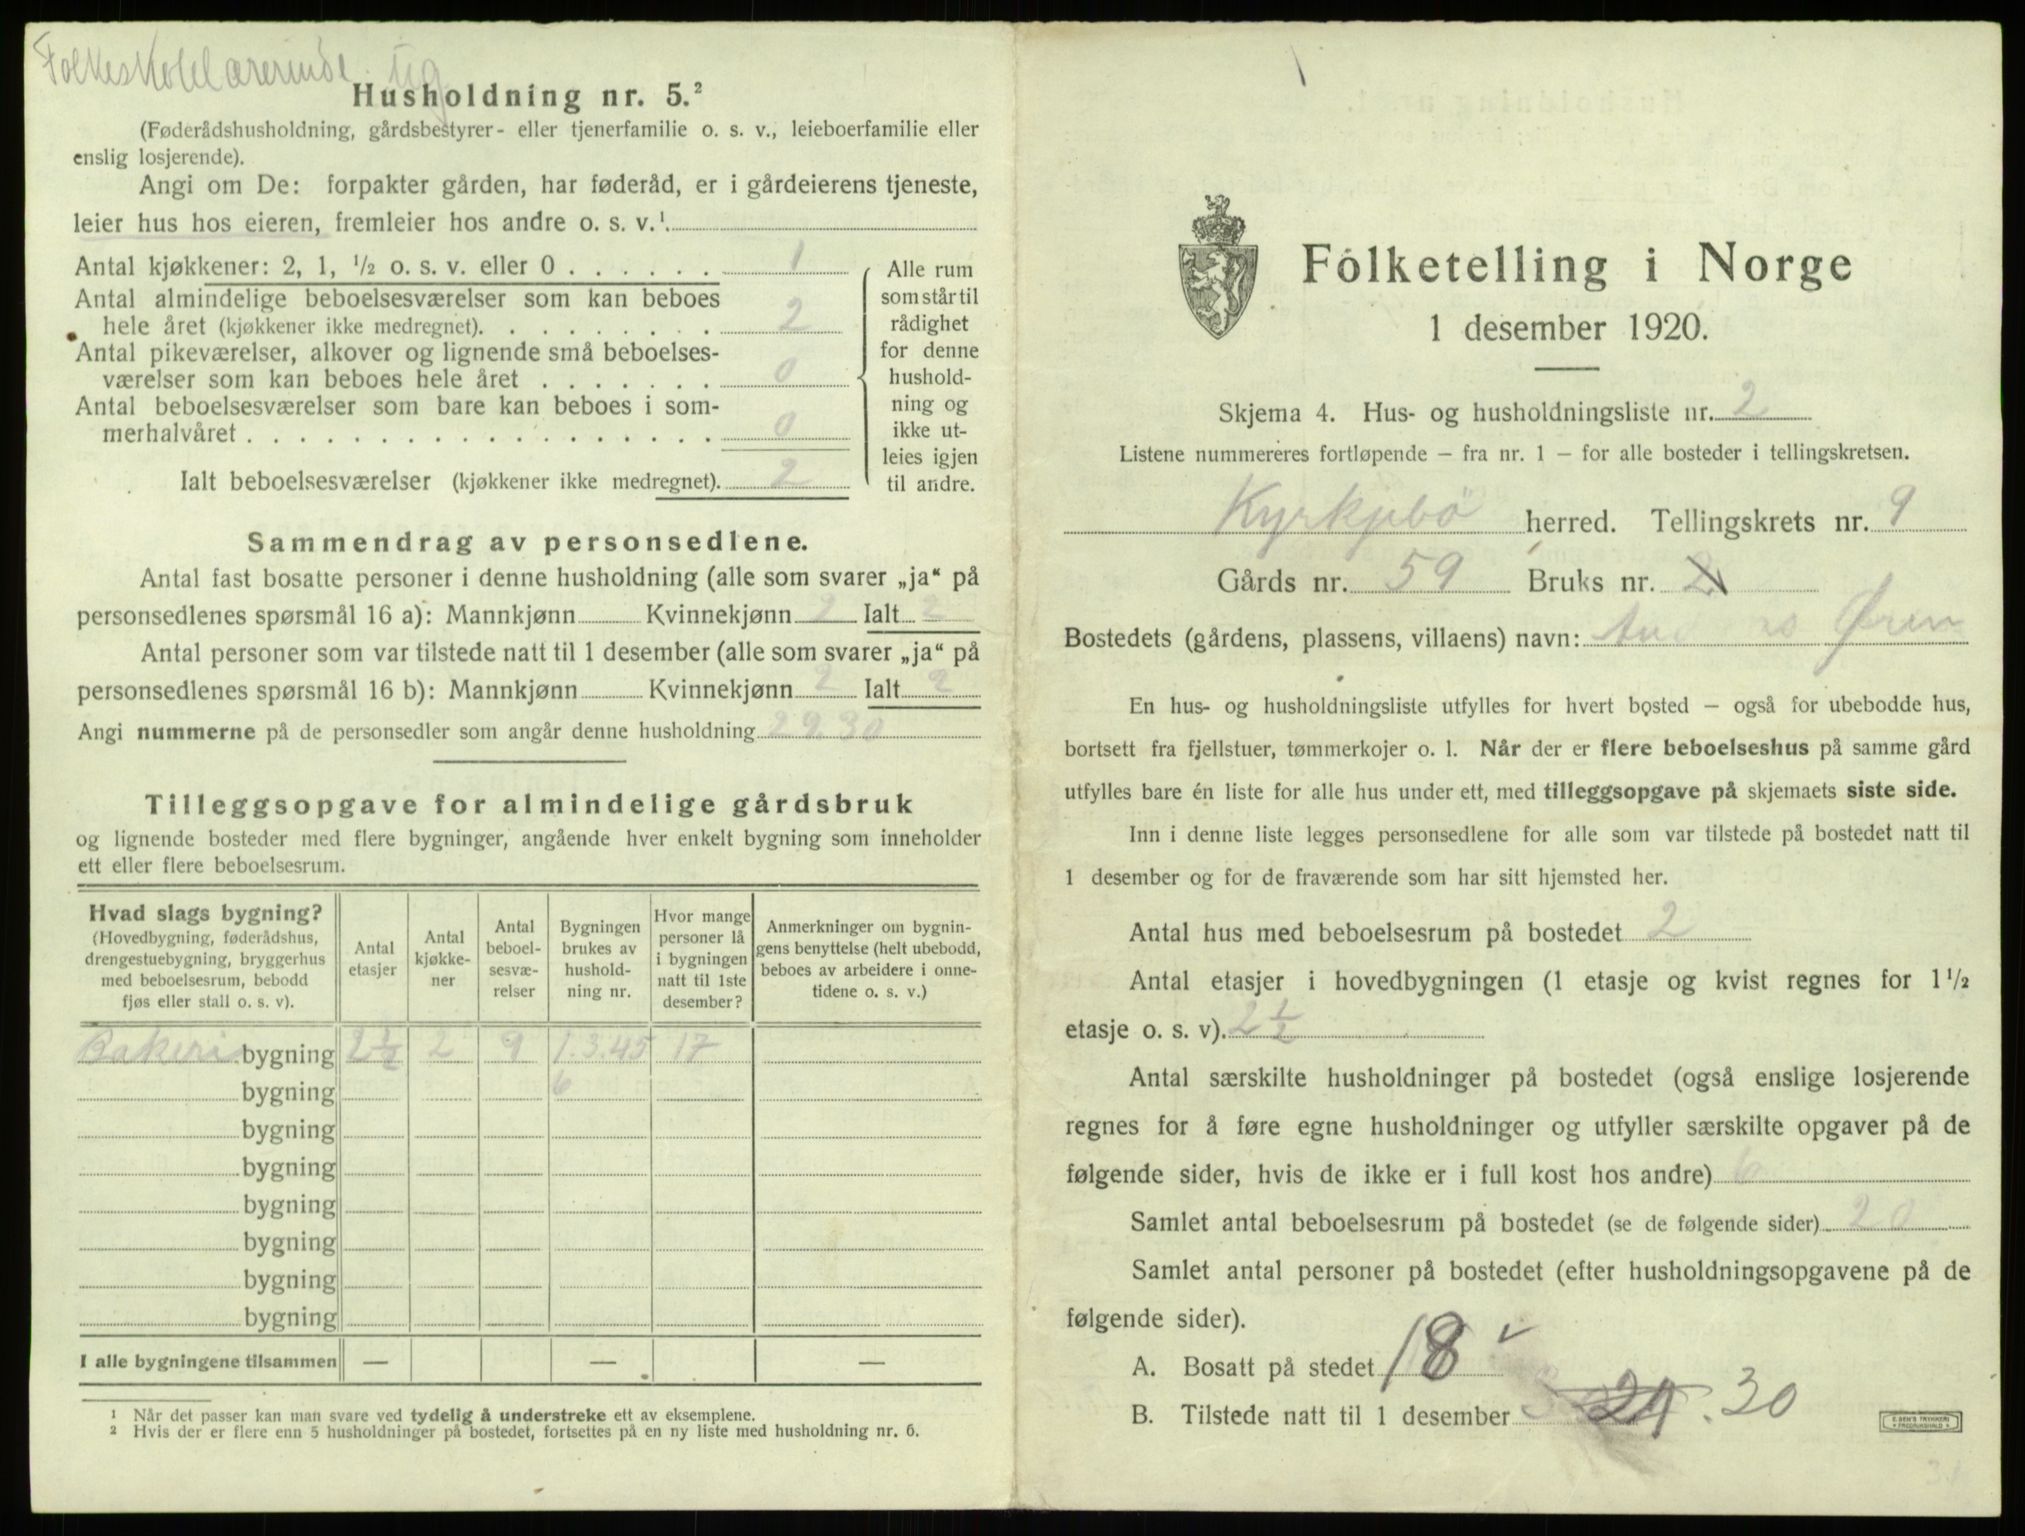 Folkeskolelærerinde. ug
Husholdning nr. 5.²
(Føderådshusholdning, gårdsbestyrer- eller tjenerfamilie o. s. v., leieboerfamilie eller
enslig losjerende).
Angi om De: forpakter gården, har føderåd, er i gårdeierens tjeneste,
leier hus hos eieren, fremleier hos andre o. s. v.¹
Antal kjøkkener: 2, 1, ¹/₂ o. s. v. eller 0 . . . . . . 1
Antal almindelige beboelsesværelser som kan beboes
hele året (kjøkkener ikke medregnet). . . . . . . . . 2
Antal pikeværelser, alkover og lignende små beboelses-
værelser som kan beboes hele året . . . . . . . 0
Antal beboelsesværelser som bare kan beboes i som-
merhalvåret . . . . . . . . . . . . . . . . . . 0
Ialt beboelsesværelser (kjøkkener ikke medregnet). 2
Alle rum
som står til
rådighet
for denne
hushold-
ning og
ikke ut-
leies igjen
til andre.
Sammendrag av personsedlene.
Antal fast bosatte personer i denne husholdning (alle som svarer „ja“ på
personsedlenes spørsmål 16 a): Mannkjønn Kvinnekjønn 2 Ialt 2
Antal personer som var tilstede natt til 1 desember (alle som svarer „ja“ på
personsedlenes spørsmål 16 b): Mannkjønn Kvinnekjønn 2 Ialt 2
Angi nummerne på de personsedler som angår denne husholdning 29.30
Tilleggsopgave for almindelige gårdsbruk
og lignende bosteder med flere bygninger, angående hver enkelt bygning som inneholder
ett eller flere beboelsesrum.
Hvad slags bygning?
(Hovedbygning, føderådshus,
drengestuebygning, bryggerhus
med beboelsesrum, bebodd
fjøs eller stall o. s. v).
Antal
etasjer
Antal
kjøkke-
ner
Antal
beboel-
sesvæ-
relser
Bygningen
brukes av
hushold-
ning nr.
Hvor mange
personer lå
i bygningen
natt til 1ste
desember?
Anmerkninger om bygnin-
gens benyttelse (helt ubebodd,
beboes av arbeidere i onne-
tidene o. s. v.)
Bakeri bygning 2½ 2 9 1.3.45 17
bygning 6
bygning
bygning
bygning
bygning
bygning
bygning
I alle bygningene tilsammen — — —
¹ Når det passer kan man svare ved tydelig å understreke ett av eksemplene.
² Hvis der er flere enn 5 husholdninger på bostedet, fortsettes på en ny liste med husholdning nr. 6.
Folketelling i Norge
1 desember 1920.
Skjema 4. Hus- og husholdningsliste nr. 2
Listene nummereres fortløpende – fra nr. 1 – for alle bosteder i tellingskretsen.
Kyrkjebö herred. Tellingskrets nr. 9
Gårds nr. 59 Bruks nr. 2
Bostedets (gårdens, plassens, villaens) navn: Øren
En hus- og husholdningsliste utfylles for hvert bosted – også for ubebodde hus,
bortsett fra fjellstuer, tømmerkojer o. l. Når der er flere beboelseshus på samme gård
utfylles bare én liste for alle hus under ett, med tilleggsopgave på skjemaets siste side.
Inn i denne liste legges personsedlene for alle som var tilstede på bostedet natt til
1 desember og for de fraværende som har sitt hjemsted her.
Antal hus med beboelsesrum på bostedet 2
Antal etasjer i hovedbygningen (1 etasje og kvist regnes for 1 ¹/₂
etasje o. s. v). 2½
Antal særskilte husholdninger på bostedet (også enslige losjerende
regnes for å føre egne husholdninger og utfyller særskilte opgaver på de
følgende sider, hvis de ikke er i full kost hos andre) 6
Samlet antal beboelsesrum på bostedet (se de følgende sider) 20
Samlet antal personer på bostedet (efter husholdningsopgavene på de
følgende sider).
A. Bosatt på stedet 18
B. Tilstede natt til 1 desember 30
E. SEM'S TRYKKERI
FREDRIKSHALD
31